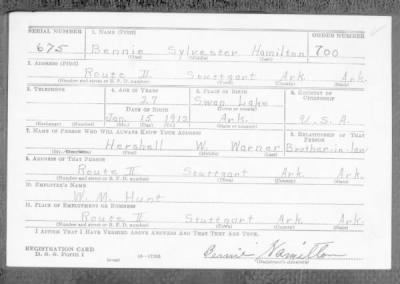 SERIAL NUMBER 1. NAME (Print) ORDER NUMBER
675 Bennie Sylvester Hamilton 700
(First) (Middle) (Last)
2. ADDRESS (Print)
Route II Stuttgart Ark. Ark.
(Number and street or R. F. D. number) (Town) (County) (State)
3. TELEPHONE 4. AGE IN YEARS 5. PLACE OF BIRTH 6. COUNTRY OF CITIZENSHIP
27 Swan Lake
DATE OF BIRTH (Town or county)
Jan. 15 1913 Ark. U.S.A.
(Exchange) (Number) (Mo.) (Day) (Yr.) (State or country)
7. NAME OF PERSON WHO WILL ALWAYS KNOW YOUR ADDRESS 8. RELATIONSHIP OF THAT PERSON
Hershell W. Warner Brother-in-law
(First) (Middle) (Last)
9. ADDRESS OF THAT PERSON
Route II Stuttgart Ark. Ark.
(Number and street or R. F. D. number) (Town) (County) (State)
10. EMPLOYER'S NAME
W. M. Hunt
11. PLACE OF EMPLOYMENT OR BUSINESS
Route II Stuttgart Ark. Ark.
(Number and street or R. F. D. number) (Town) (County) (State)
I AFFIRM THAT I HAVE VERIFIED ABOVE ANSWERS AND THAT THEY ARE TRUE.
REGISTRATION CARD
D. S. S. FORM 1 Bennie Hamilton
(Registrant's signature)